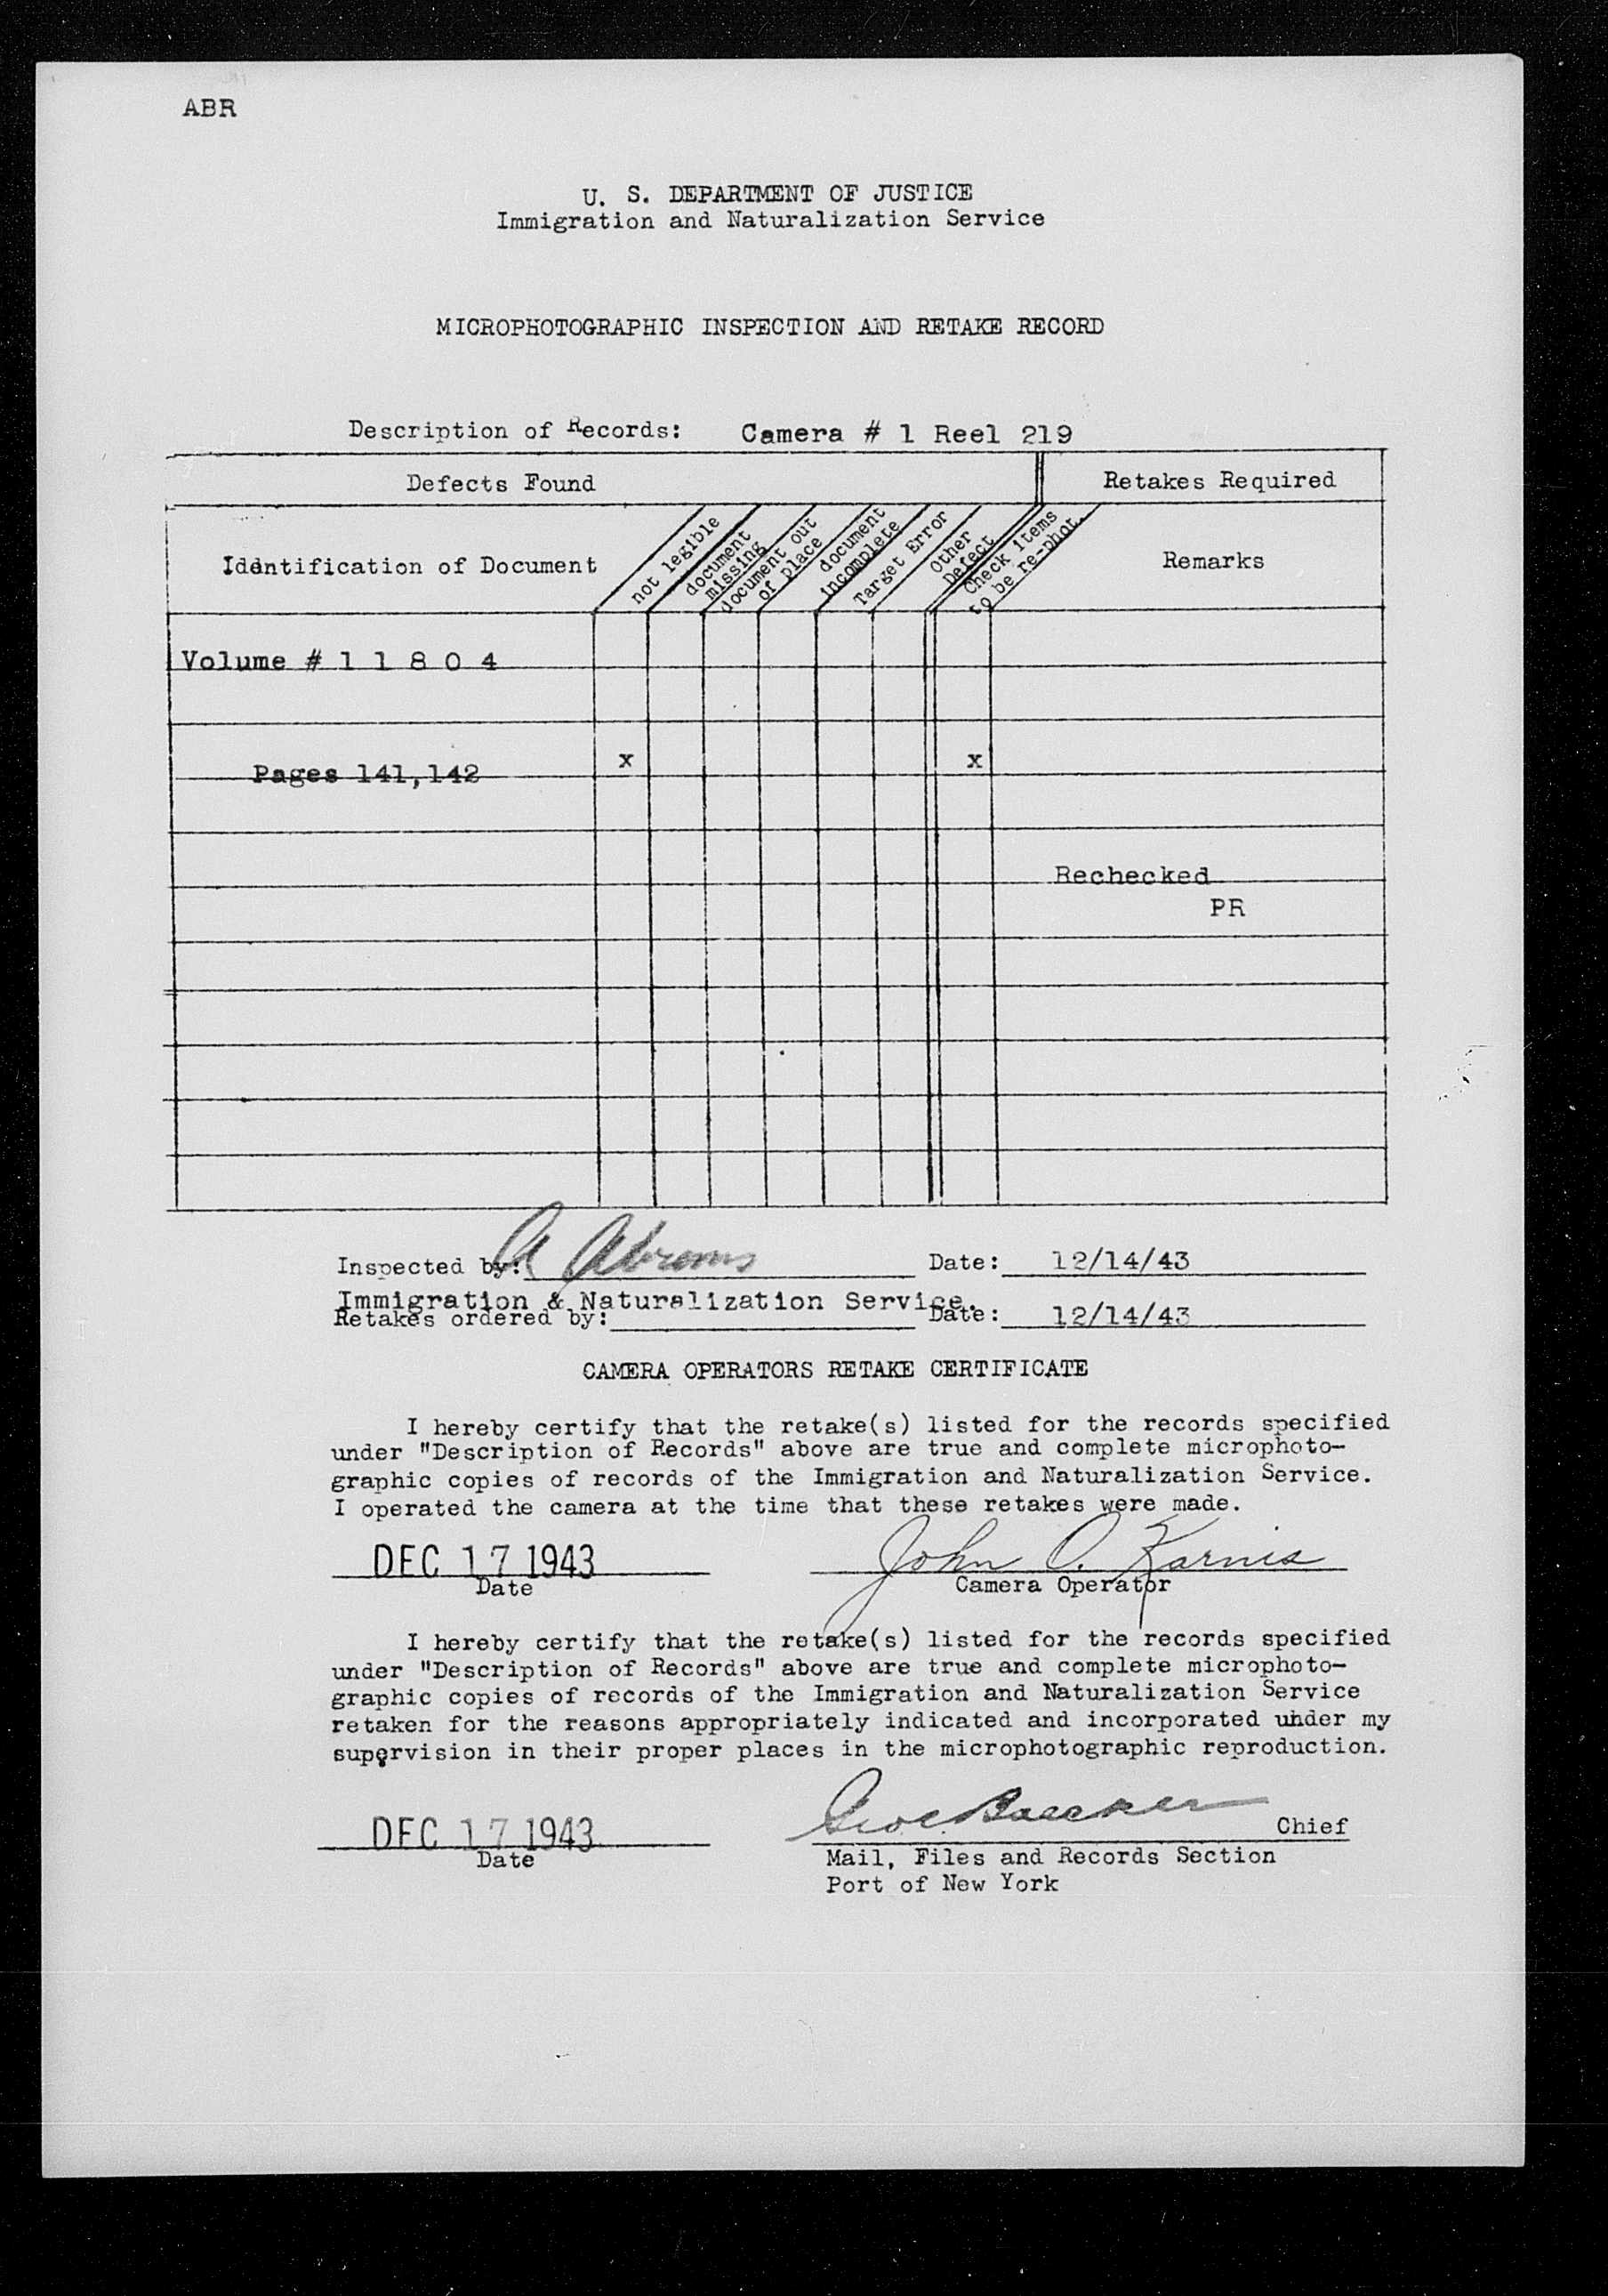 ABR
U. S. DEPARTMENT OF JUSTICE
Immigration and Naturalization Service
MICROPHOTOGRAPHIC INSPECTION AND RETAKE RECORD
Description of Records: Camera # 1 Reel 219
Defects Found Retakes Required
Identification of Document
not legible
document missing
document out of place
document incomplete
Target Error
Other Defect
Check items to be re-phot.
Remarks
Volume # 1 1 8 0 4
Pages 141,142 x x
Rechecked
PR
Inspected by: A Abrams Date: 12/14/43
Immigration & Naturalization Service.
Retakes ordered by: Date: 12/14/43
CAMERA OPERATORS RETAKE CERTIFICATE
I hereby certify that the retake(s) listed for the records specified
under "Description of Records" above are true and complete microphoto-
graphic copies of records of the Immigration and Naturalization Service.
I operated the camera at the time that these retakes were made.
DEC 17 1943 John O. Karnis
Date Camera Operator
I hereby certify that the retake(s) listed for the records specified
under "Description of Records" above are true and complete microphoto-
graphic copies of records of the Immigration and Naturalization Service
retaken for the reasons appropriately indicated and incorporated under my
supervision in their proper places in the microphotographic reproduction.
DEC 17 1943 Chief
Date Mail, Files and Records Section
Port of New York